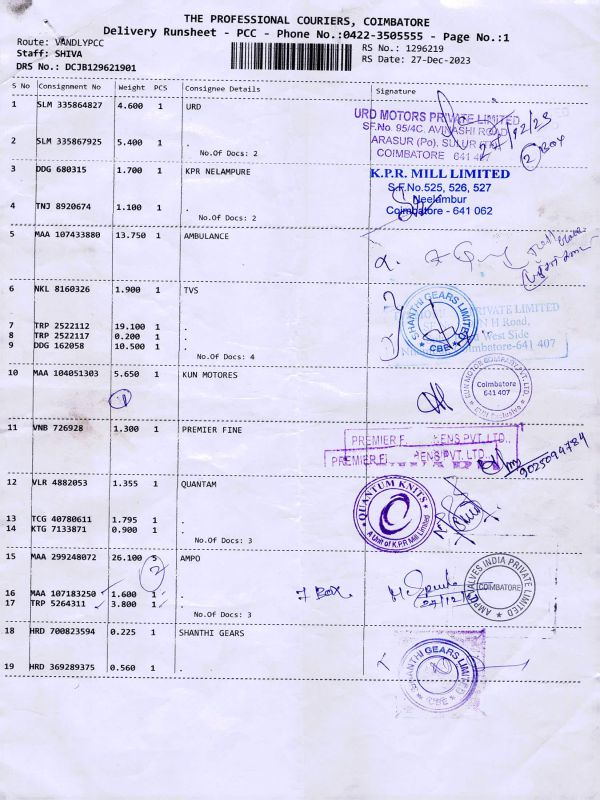 THE PROFESSIONAL COURIERS, COIMBATORE
Delivery Runsheet - PCC - Phone No.:0422-3505555 - Page No.:1
Route: VANDLYPCC
Staff: SHIVA
DRS No.: DCJB129621901
RS No.: 1296219
RS Date: 27-Dec-2023
S No Consignment No Weight PCS Consignee Details Signature
1 SLM 335864827 4.600 1 URD
URD MOTORS PRIVATE LIMITED
SF.No. 95/4C, AVINASHI ROAD
ARASUR (Po), SULUR
COIMBATORE 641
12/23
2 BOX
2 SLM 335867925 5.400 1 .
No.Of Docs: 2
3 DDG 680315 1.700 1 KPR NELAMPURE
K.P.R. MILL LIMITED
S.F.No.525, 526, 527
Neelambur
Coimbatore - 641 062
4 TNJ 8920674 1.100 1 .
No.Of Docs: 2
5 MAA 107433880 13.750 1 AMBULANCE
6 NKL 8160326 1.900 1 TVS
SHANTHI GEARS LIMITED
CBE
PRIVATE LIMITED
N H Road,
West Side
Coimbatore-641 407
7 TRP 2522112 19.100 1 .
8 TRP 2522117 0.200 1 .
9 DDG 162058 10.500 1 .
No.Of Docs: 4
10 MAA 104051303 5.650 1 KUN MOTORES
KUN MOTOR COMPANY PVT. LTD.
Coimbatore
641 407
KUN Exclusive
11 VNB 726928 1.300 1 PREMIER FINE
PREMIER F. ENS PVT. LTD.,
PREMIER FI ENS PVT. LTD.,
9025094784
12 VLR 4882053 1.355 1 QUANTAM
QUANTUM KNITS
A Unit of K.P.R Mill Limited
13 TCG 40780611 1.795 1 .
14 KTG 7133871 0.900 1 .
No.Of Docs: 3
15 MAA 299248072 26.100 5 AMPO
7 BOX
27/12/
AMPO VALVES INDIA PRIVATE LIMITED
COIMBATORE
16 MAA 107183250 1.600 1 .
17 TRP 5264311 3.800 1 .
No.Of Docs: 3
18 HRD 700823594 0.225 1 SHANTHI GEARS
SHANTHI GEARS LIMITED
CBE
19 HRD 369289375 0.560 1 .